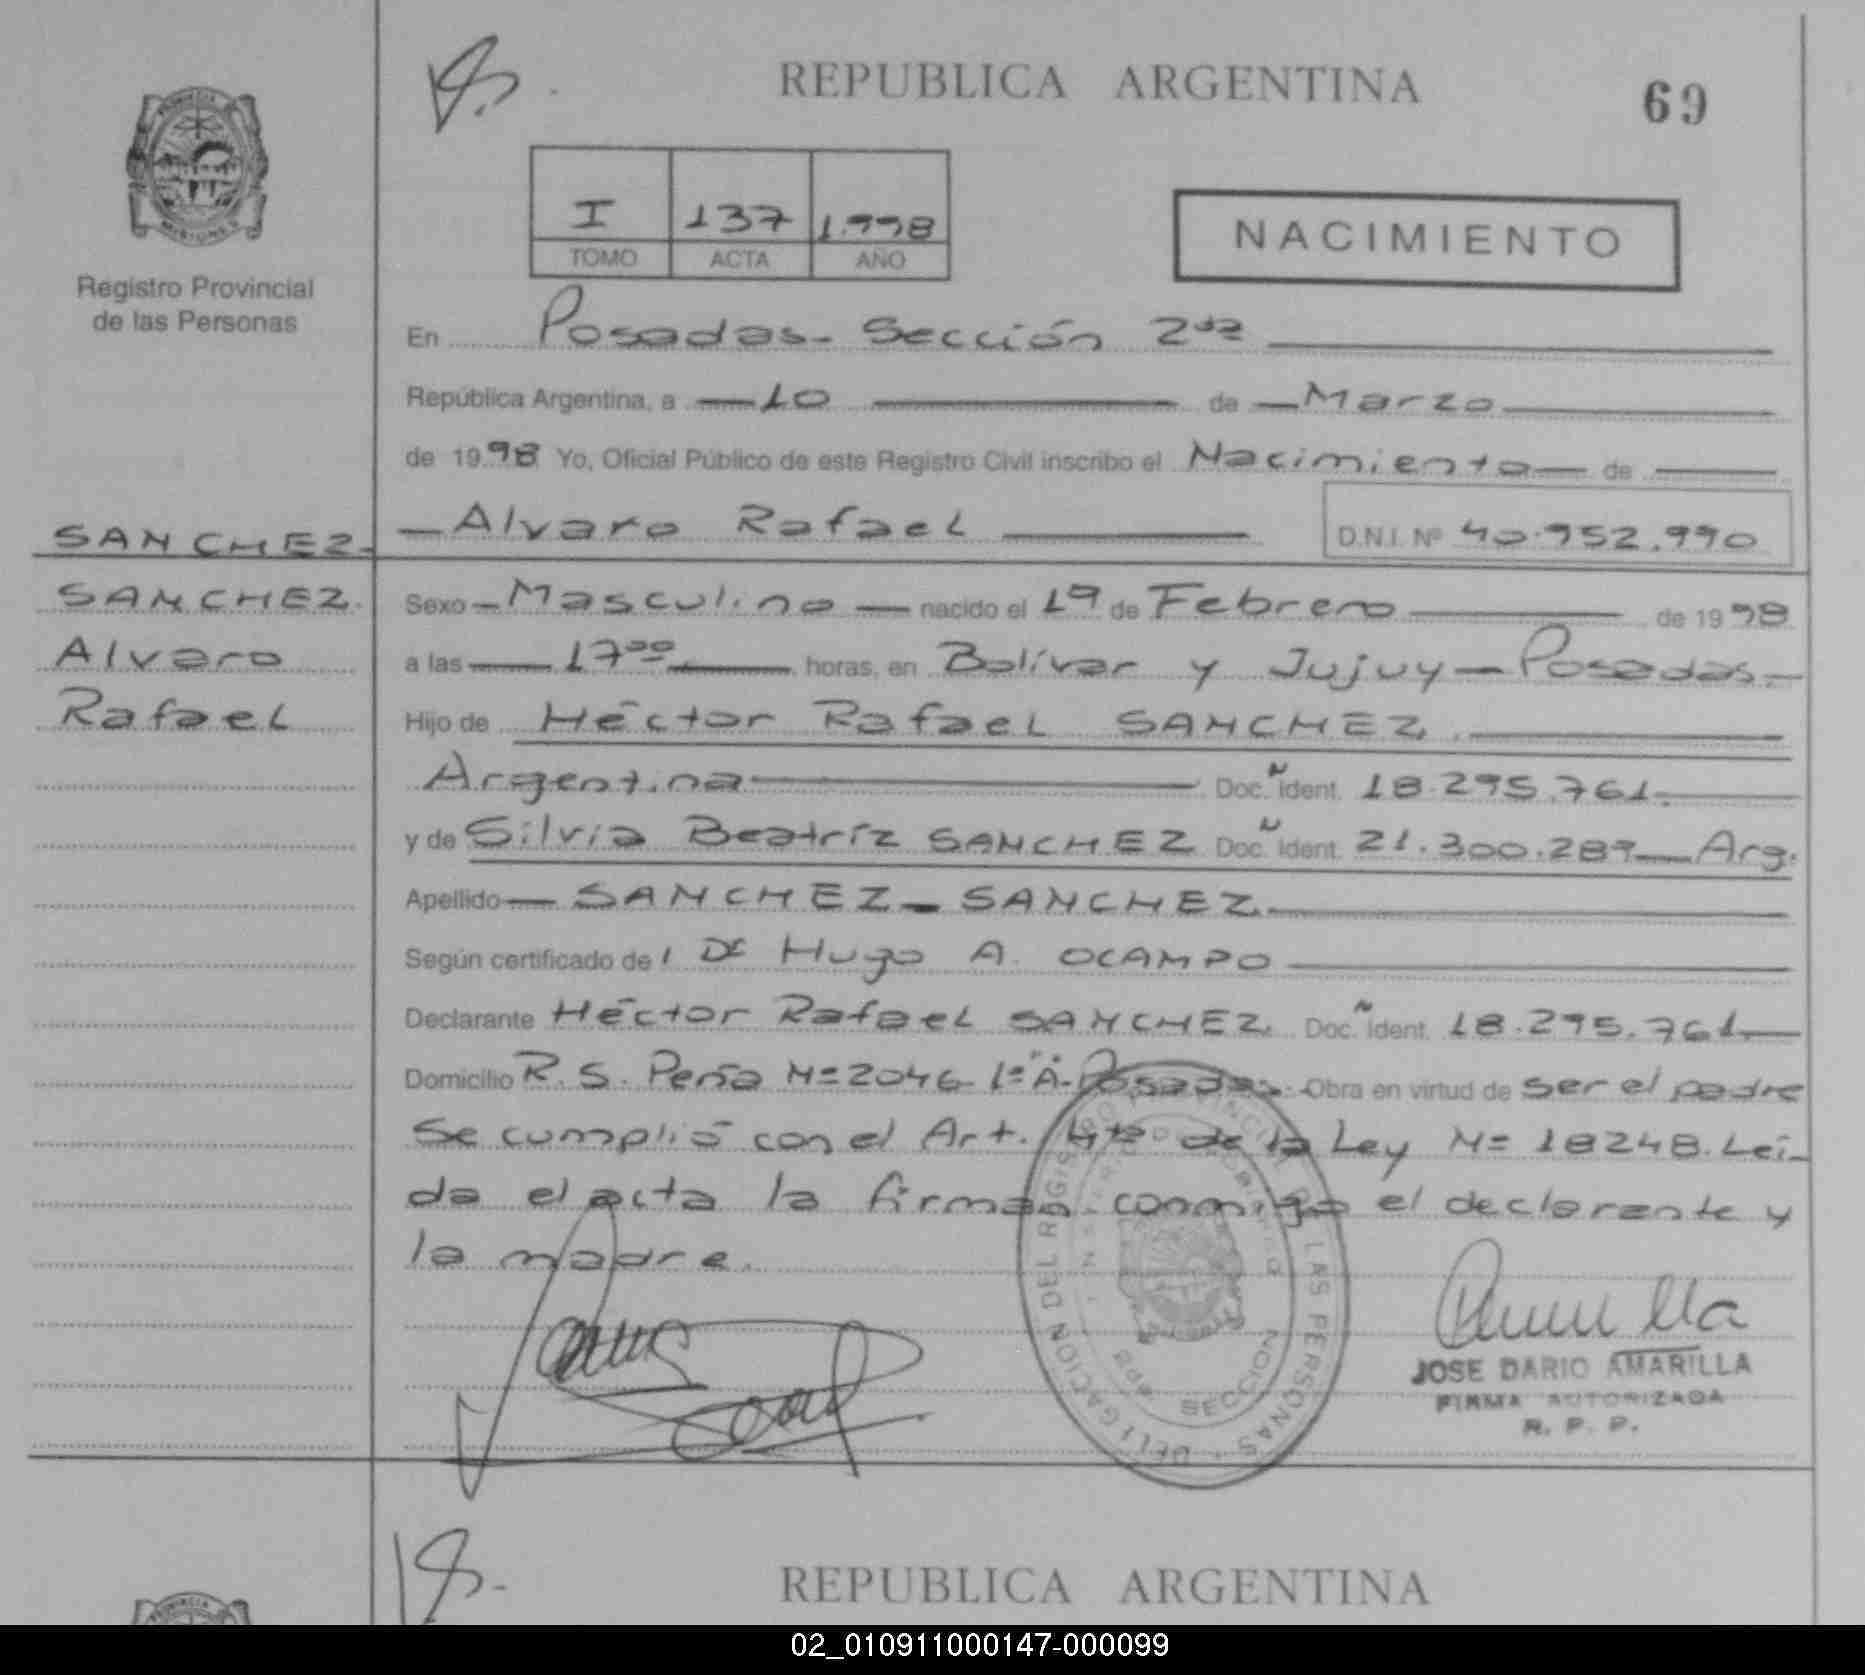 REPUBLICA ARGENTINA
69
I 137 1.998
TOMO ACTA AÑO
NACIMIENTO
PROVINCIA
MISIONES
Registro Provincial
de las Personas
En Posadas- Sección 2da
República Argentina, a 10 de Marzo
de 1998 Yo, Oficial Público de este Registro Civil inscribo el Nacimiento de
Alvaro Rafael D.N.I. Nº 40.952.990
SANCHEZ
SANCHEZ
Alvaro
Rafael
Sexo Masculino nacido el 19 de Febrero de 1998
a las 17oo horas, en Bolívar y Jujuy - Posadas-
Hijo de Héctor Rafael SANCHEZ
Argentina Doc. Ñ Ident. 18.295.761.
y de Silvia Beatríz SANCHEZ Doc. Ident. 21.300.289 Arg.
Apellido SANCHEZ - SANCHEZ
Según certificado de l Dr Hugo A. OCAMPO
Declarante Héctor Rafael SANCHEZ Doc. Ident. 18.295.761
Domicilio R. S. Peña Nº 2046 1º "A"- Posadas. Obra en virtud de ser el padre
Se cumplió con el Art. 4to de la Ley Nº 18248. Leí-
da el acta la firman conmigo el declarante y
la madre.
DELEGACION DEL REGISTRO PROVINCIAL DE LAS PERSONAS
2da SECCION
JOSE DARIO AMARILLA
FIRMA AUTORIZADA
R. P. P.
REPUBLICA ARGENTINA
PROVINCIA
02_010911000147-000099